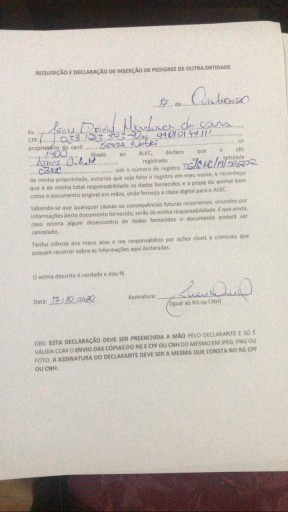 REQUISIÇÃO E DECLARAÇÃO DE INSERÇÃO DE PEDIGREE DE OUTRA ENTIDADE
17 de Outubro
Eu
CPF
proprietário do canil Serra nº
filiado ao ALKC, declaro que o cão
registrado entidade
CBKC sob o número de registro
de minha propriedade, autorizo que seja feito o registro em meu nome, e reconheço
que é de minha total responsabilidade os dados fornecidos e a posse do animal bem
como o documento original em mãos, onde forneço a cópia digital para a ALKC.
Sabendo-se que quaisquer causas ou consequências futuras recorrentes, oriundas por
informações deste documento fornecido, serão de minha responsabilidade. E que ainda,
caso ocorra algum desencontro de dados fornecidos o documento poderá ser
cancelado.
Tenho ciência dos meus atos e me responsabilizo por ações cíveis e criminais que
possam recorrer sobre as informações aqui declaradas.
O acima descrito é verdade e dou fé
Data: 17/10/2020 Assinatura:
(Igual ao RG ou CNH)
OBS: ESTA DECLARAÇÃO DEVE SER PREENCHIDA A MÃO PELO DECLARANTE E SÓ É
VÁLIDA COM O ENVIO DAS CÓPIAS DO RG E CPF OU CNH DO MESMO EM JPEG, PNG OU
FOTO. A ASSINATURA DO DECLARANTE DEVE SER A MESMA QUE CONSTA NO RG CPF
OU CNH.